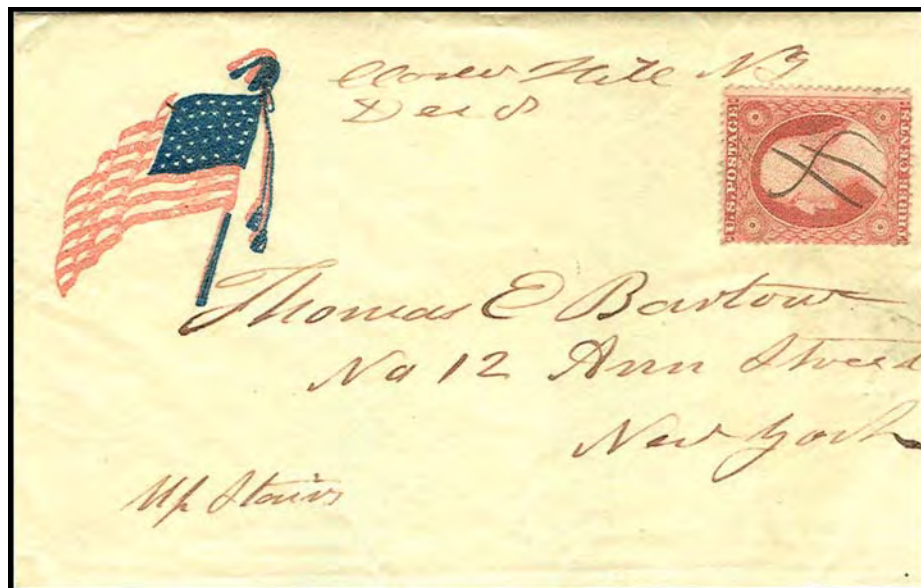 Hill NY
Dec 8
U.S. POSTAGE
THREE CENTS
Thomas E Bartow
No 12 Ann Street
New York
Up Stairs